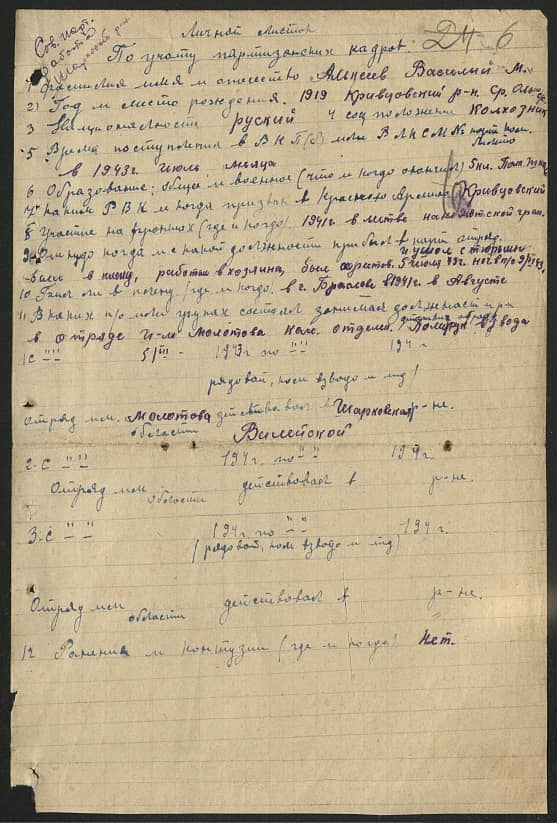 Сов. парт.
работа
Шарковский р-н
Личной листок
По учету партизанских кадров.
24-6
1 Фамилия имя и отчество Алексеев Василий М.
2) Год и место рождения: 1919 Кривцовский р-н
3 Национальность руский 4 соц положение Колхозник
5 Время поступления в ВКП(б) или ВЛКСМ №
в 1943г. июль месяца
6 Образование: общее и военное (что и когда окончил) 5 кл.
7 каким РВК и когда призван в Красную Армию Кривцовский
8 Участие на фронтах (где и когда) 1941г. в литве на
9 Откуда когда и с какой должности прибыл в парт. отряд.
был в плену, работал в хозяина, был арестов. 5 июля 43г.
10 Был ли в плену (где и когда) в г. 1941г. в Августе
11 В каких п/о или групах состоял занимая должность
в отряде и-м Молотова ком. отделен. Политрук взвода
1 с " " 5/III - 1943г по " " 194 г.
рядовой, ком взвода и тд/
Отряд им. Молотова действовал в Шарковская р-не.
области Вилейской
2. с " " 194 г. по " " 194 г.
Отряд им области действовал в р-не.
3. с " " 194 г. по " " 194 г.
(рядовой, ком взвода и тд)
Отряд им области действовал в р-не.
12 Ранения и контузии (где и когда) Нет.